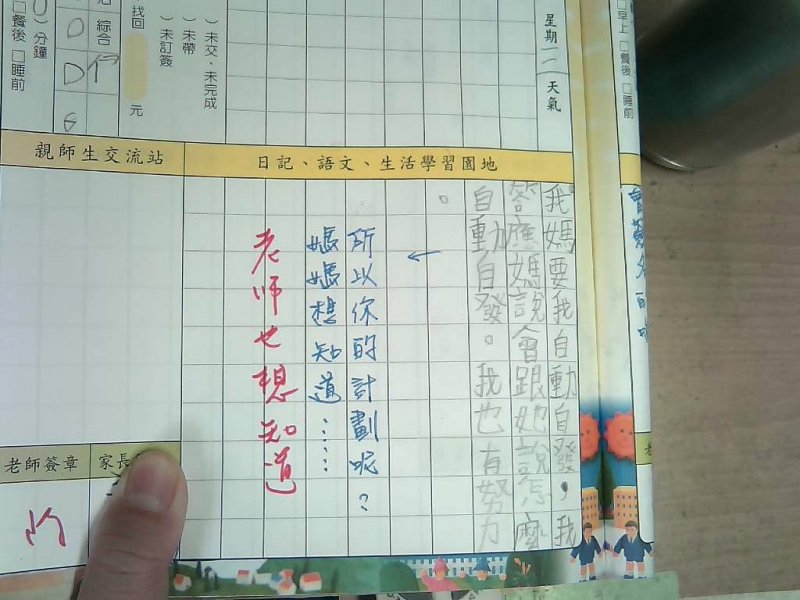 星期二
天氣
早上
□餐後
□睡前
）未交、未完成
）未帶
）未訂簽
找回
元
綜合
）分鐘
□餐後 □睡前
親師生交流站
日記、語文、生活學習園地
我媽要我自動自發，我
答應媽說會跟她說怎麼
自動自發。我也有努力
。
←
所以你的計劃呢？
媽媽想知道……
老师也想知道
老師簽章
家長